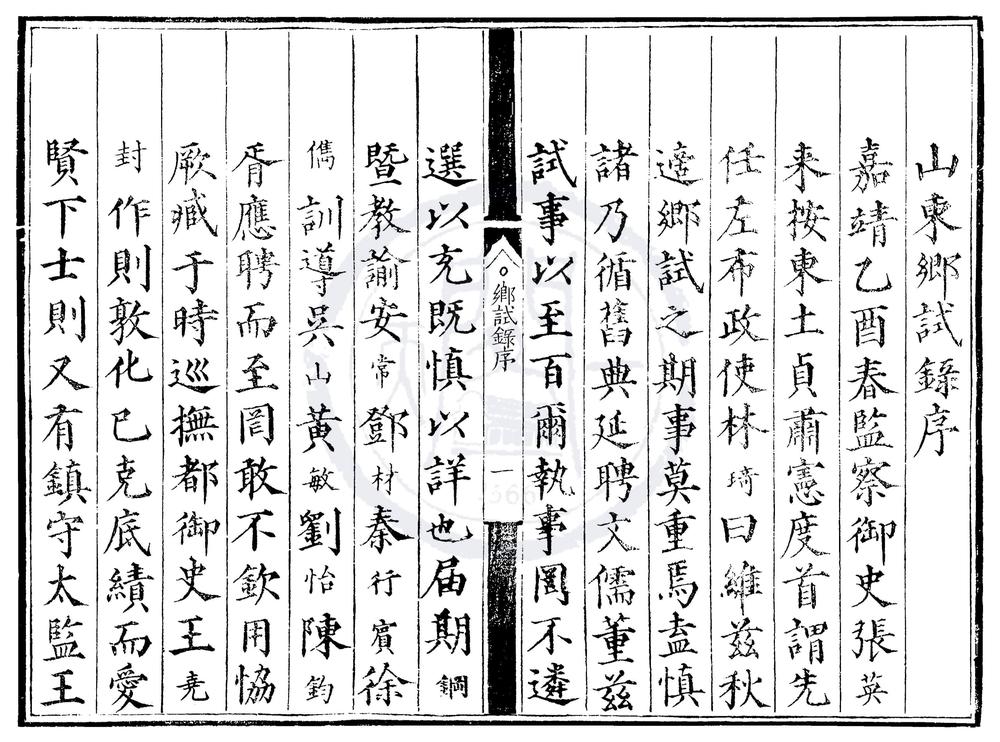 山東鄉試錄序
嘉靖乙酉春監察御史張英
来按東土貞肅憲度首謂先
任左布政使林琦曰維茲秋
適鄉試之期事莫重焉盍慎
諸乃循舊典延聘文儒董茲
試事以至百爾執事罔不遴
鄉試錄序
一
選以充既慎以詳也届期鋼
暨教諭安常鄧材秦行賓徐
儁訓導吳山黃敏劉怡陳鈞
胥應聘而至罔敢不欽用恊
厥臧于時巡撫都御史王堯
封作則敦化已克底績而愛
賢下士則又有鎮守太監王